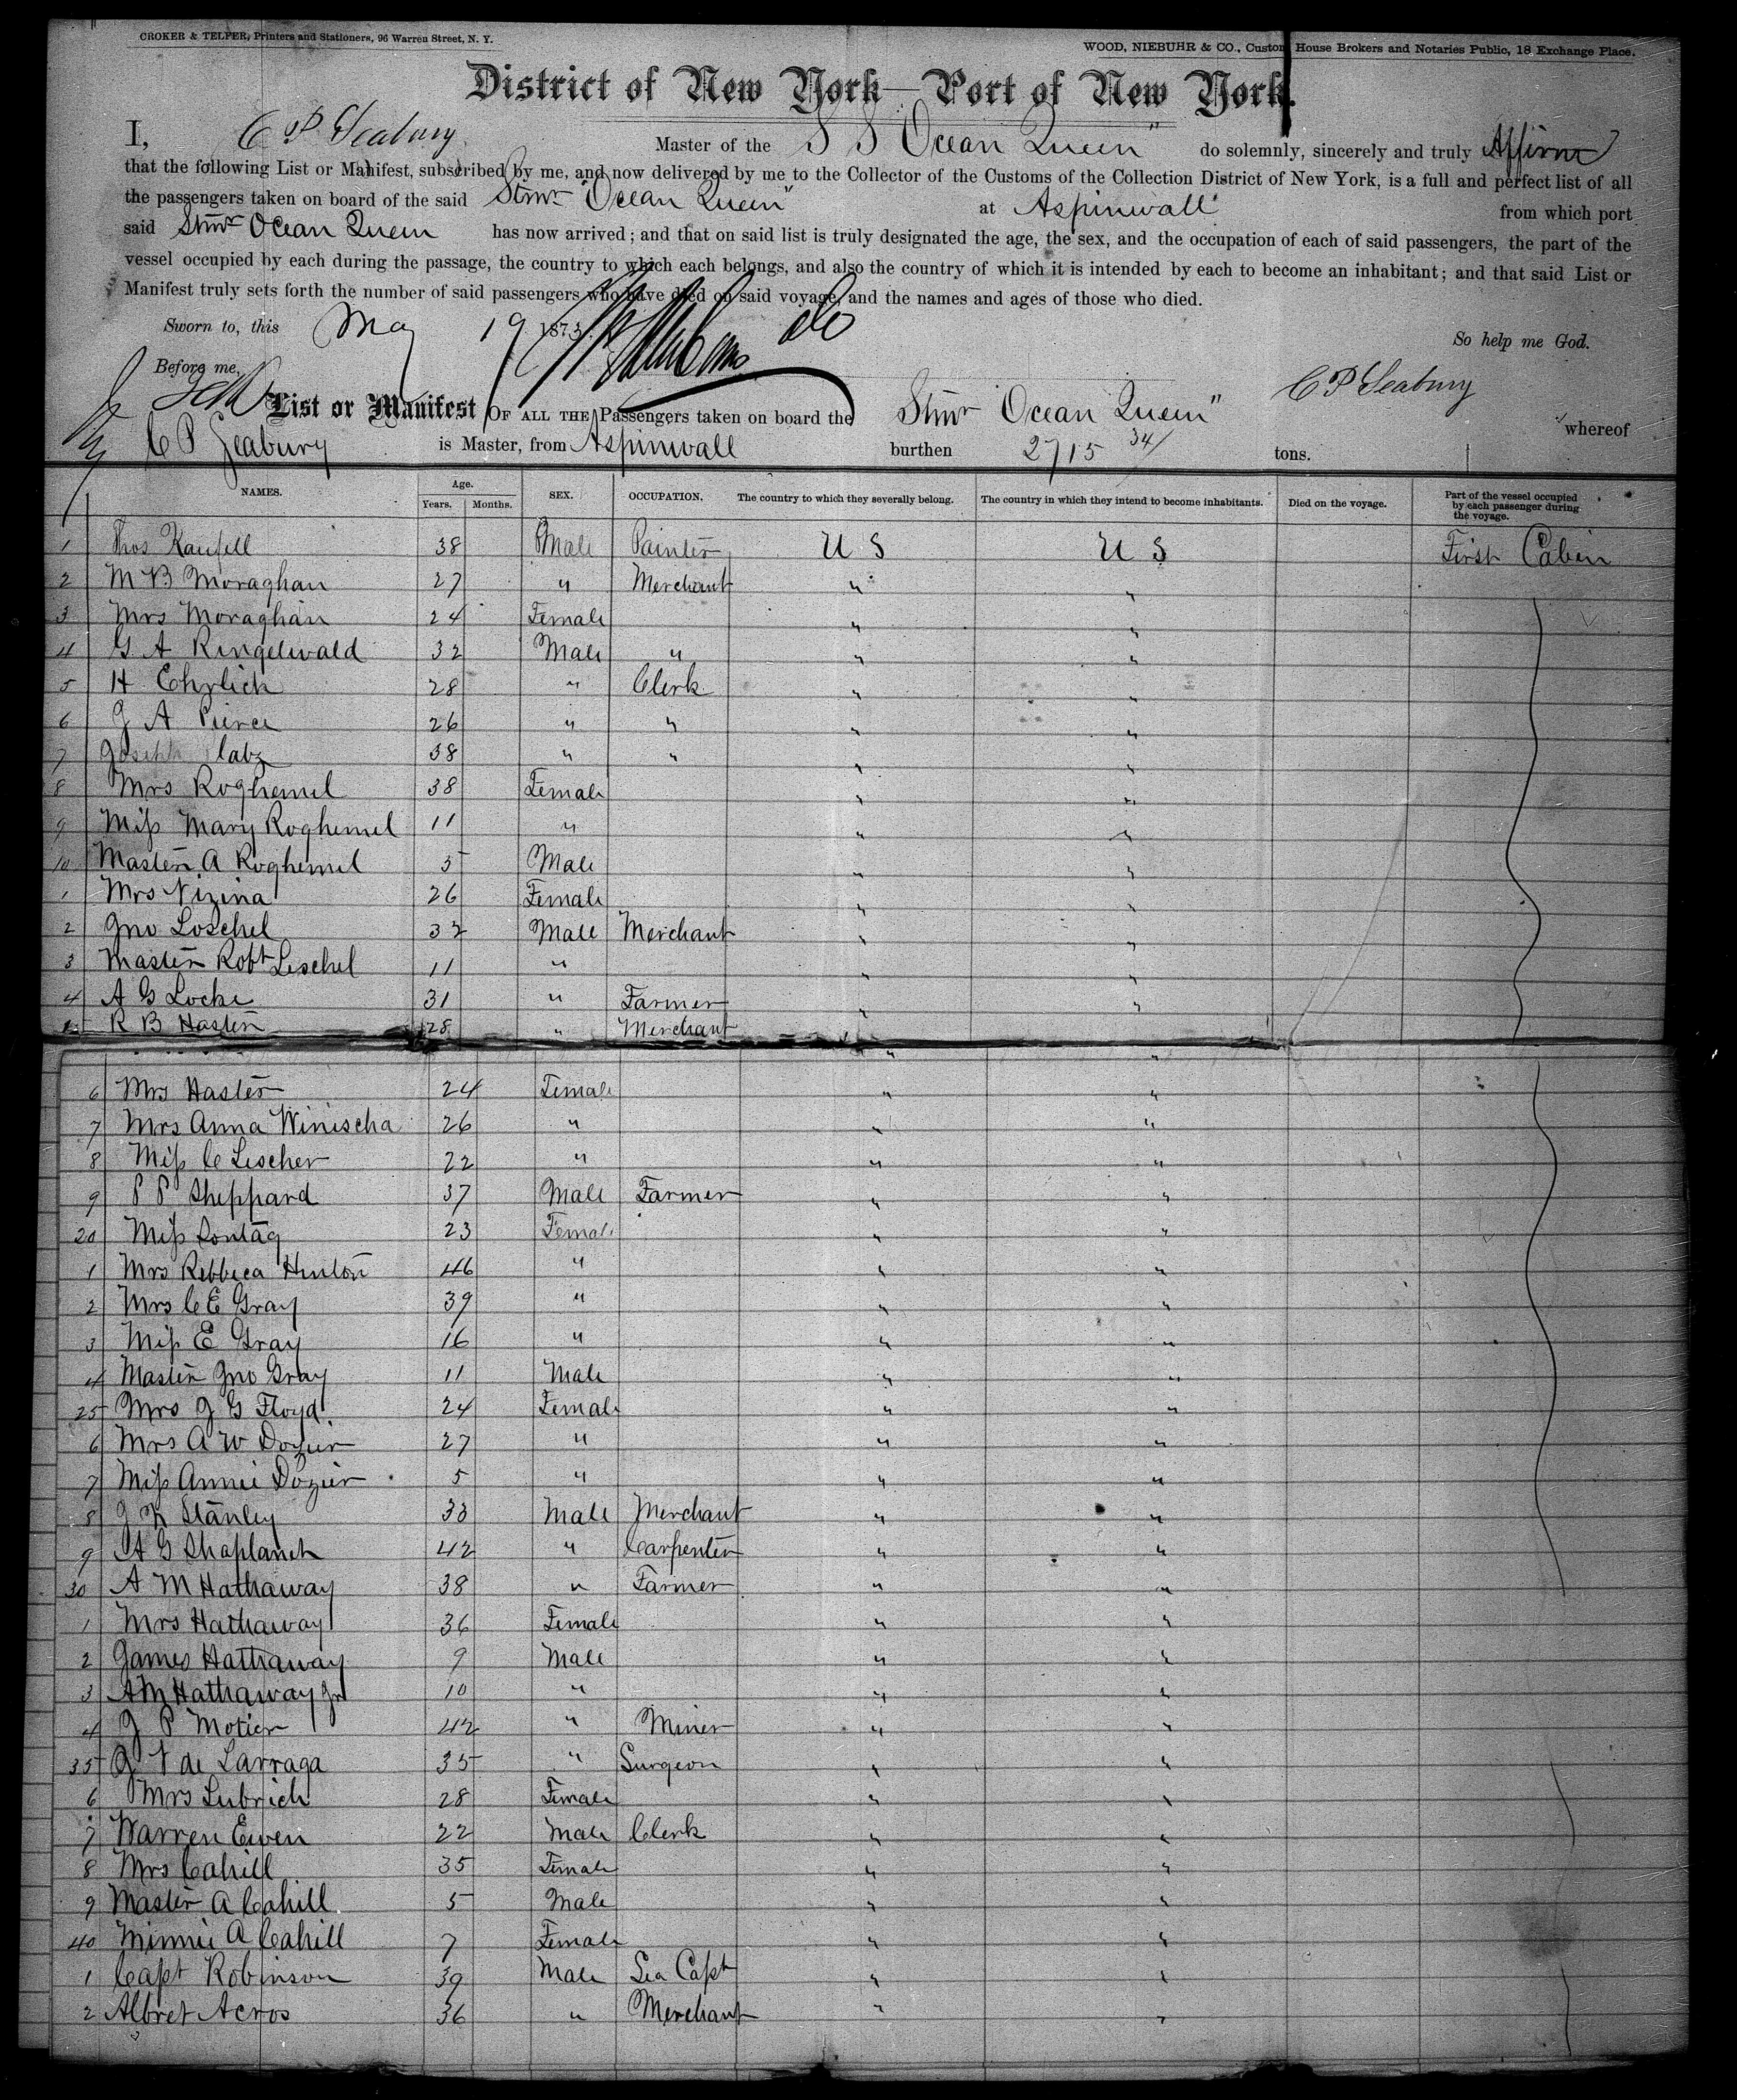 CROKER & TELFER, Printers and Stationers, 96 Warren Street, N. Y.
WOOD, NIEBUHR & CO., Custom House Brokers and Notaries Public, 18 Exchange Place.
District of New York—Port of New York.
I, C P Seabury Master of the S S Ocean Queen" do solemnly, sincerely and truly Affirm
that the following List or Manifest, subscribed by me, and now delivered by me to the Collector of the Customs of the Collection District of New York, is a full and perfect list of all
the passengers taken on board of the said Stmr "Ocean Queen" at Aspinwall from which port
said Stmr Ocean Queen has now arrived; and that on said list is truly designated the age, the sex, and the occupation of each of said passengers, the part of the
vessel occupied by each during the passage, the country to which each belongs, and also the country of which it is intended by each to become an inhabitant; and that said List or
Manifest truly sets forth the number of said passengers who have died on said voyage, and the names and ages of those who died.
Sworn to, this May 19 1873
So help me God.
Before me,
C P Seabury
List or Manifest OF ALL THE Passengers taken on board the Stmr Ocean Queen" whereof
C P Seabury is Master, from Aspinwall burthen 2715 34/ tons.
NAMES. Age. Years. Months. SEX. OCCUPATION. The country to which they severally belong. The country in which they intend to become inhabitants. Died on the voyage. Part of the vessel occupied by each passenger during the voyage.
1 Thos 38 Male Painter U S U S First Cabin
2 M B Moraghan 27 " Merchant " "
3 Mrs Moraghan 24 Female " "
4 G A Ringelwald 32 Male " " "
5 H Ehrlich 28 " Clerk " "
6 J A Pierce 26 " " " "
7 Joseph 38 " " " "
8 Mrs Roghemel 38 Female " "
9 Miss Mary Roghemel 11 " " "
10 Master A Roghemel 5 Male " "
1 Mrs Nizina 26 Female " "
2 Jno Loschel 32 Male Merchant " "
3 Master Robt Leschel 11 " " "
4 A G Locke 31 " Farmer " "
5 R B Hasten 28 " Merchant " "
6 Mrs Hasten 24 Female " "
7 Mrs Anna Winischa 26 " " "
8 Miss C Lescher 22 " " "
9 P P Sheppard 37 Male Farmer " "
20 Miss Sontag 23 Female " "
1 Mrs Rebbeca Hinton 46 " " "
2 Mrs C E Gray 39 " " "
3 Miss E Gray 16 " " "
4 Master Jno Gray 11 Male " "
25 Mrs J G Floyd 24 Female " "
6 Mrs A W Dozier 27 " " "
7 Miss Annie Dozier 5 " " "
8 J K Stanley 33 Male Merchant " "
9 A G Shaplanch 42 " Carpenter " "
30 A M Hathaway 38 " Farmer " "
1 Mrs Hathaway 36 Female " "
2 James Hathaway 9 Male " "
3 A M Hathaway Jr 10 " " "
4 J P Motier 42 " Miner " "
35 J N de Larraga 35 " Surgeon " "
6 Mrs Lubrich 28 Female " "
7 Warren Ewen 22 Male Clerk " "
8 Mrs Cahill 35 Female " "
9 Master A Cahill 5 Male " "
40 Minnie A Cahill 7 Female " "
1 Capt Robinson 39 Male Sea Capt " "
2 Albret Acros 36 " Merchant " "